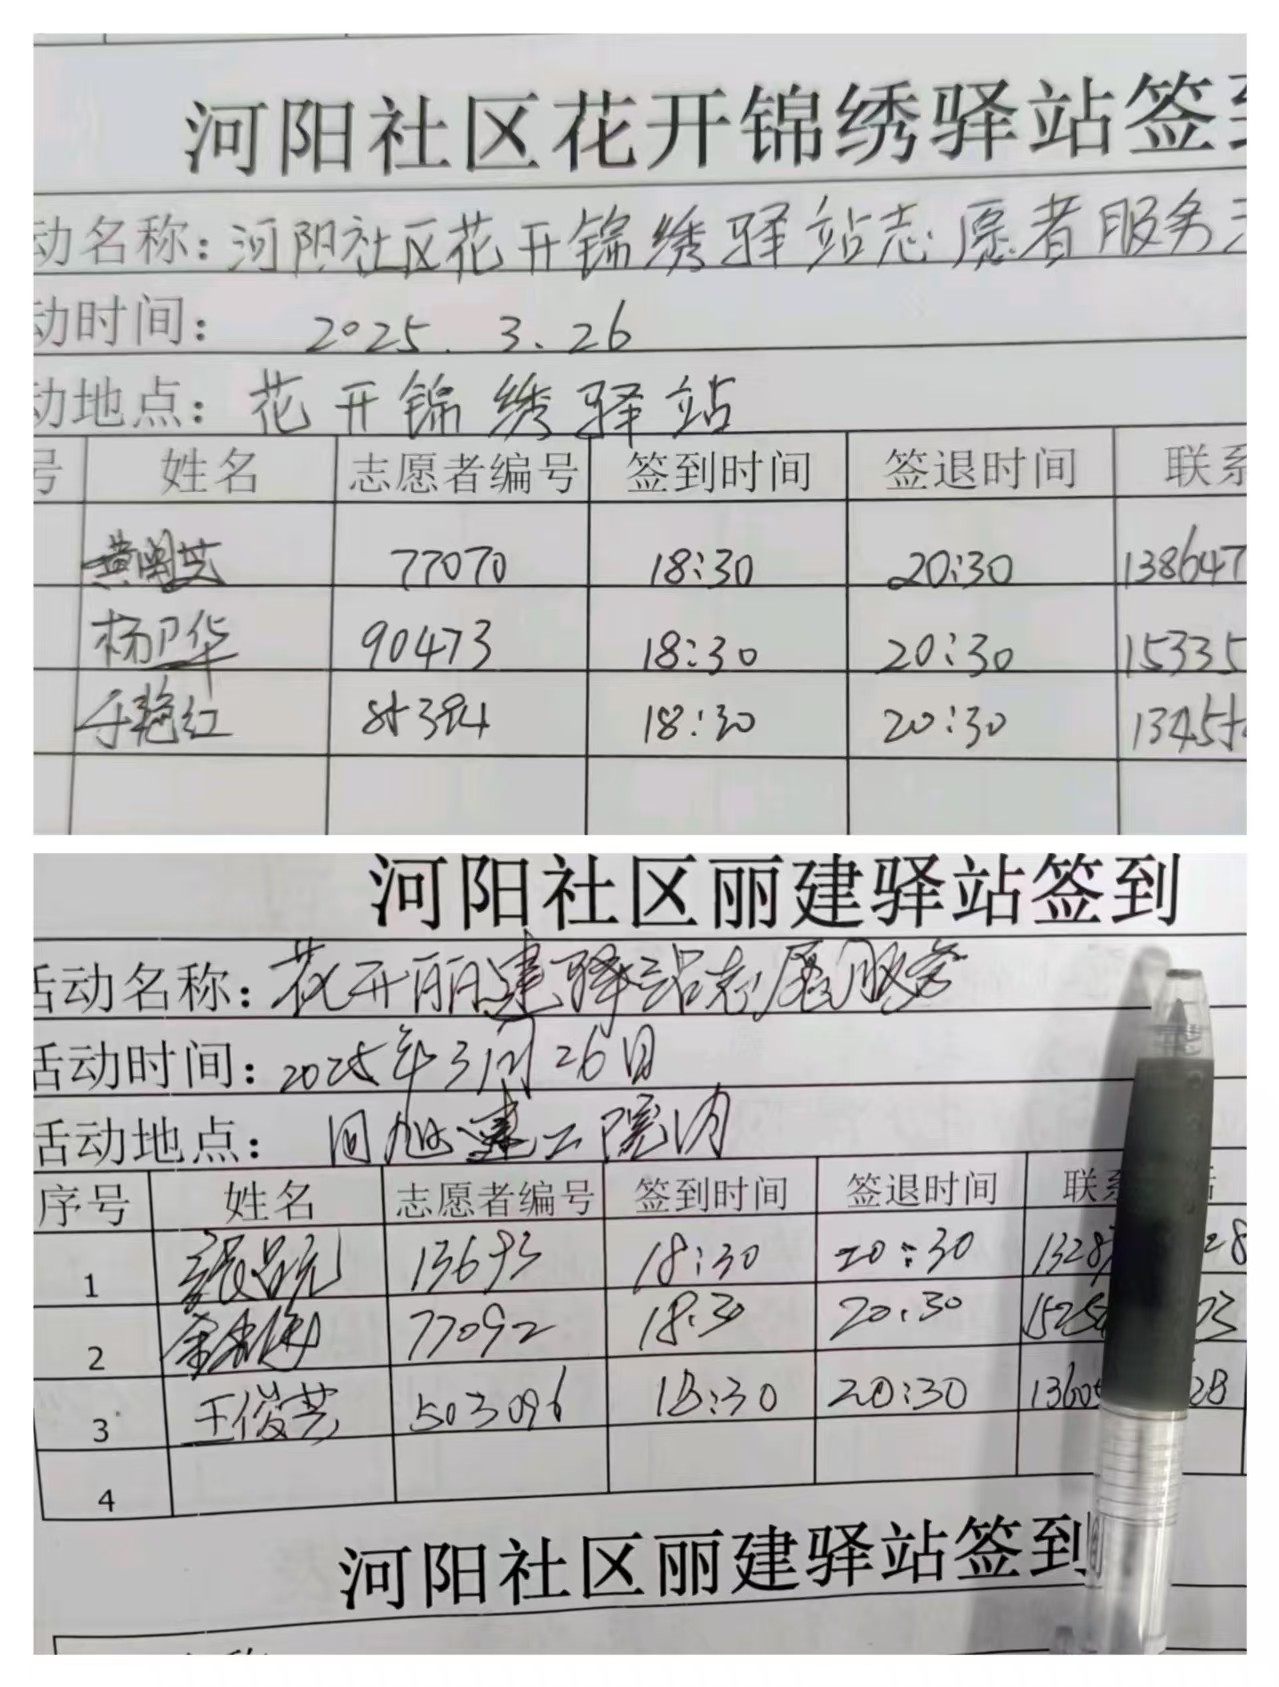 河阳社区花开锦绣驿站签到
动名称：河阳社区花开锦绣驿站志愿者服务
动时间： 2025.3.26
动地点：花开锦绣驿站
号 姓名 志愿者编号 签到时间 签退时间 联系
77070 18:30 20:30 138647
杨卫华 90473 18:30 20:30 15335
于艳红 85384 18:30 20:30 1345
河阳社区丽建驿站签到
活动名称：花开丽建驿站志愿服务
活动时间：2025年3月26日
活动地点： 旭建工院内
序号 姓名 志愿者编号 签到时间 签退时间 联系 话
1 13693 18:30 20:30 1328 28
2 77092 18:30 20:30 1525 03
3 王俊芸 503096 18:30 20:30 1360 28
4
河阳社区丽建驿站签到